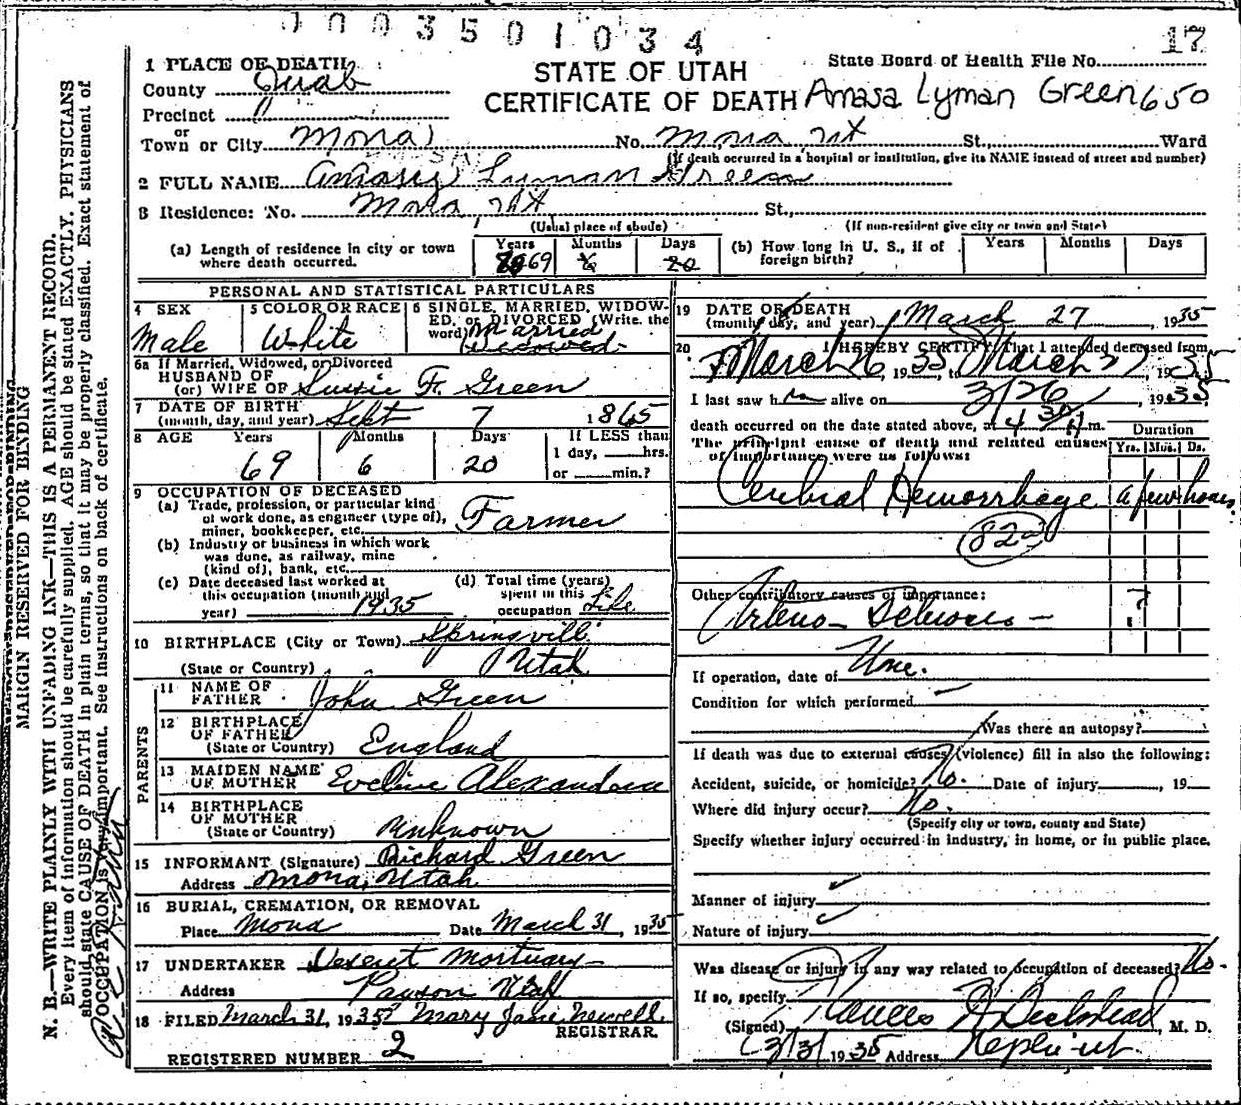 0003501034
17
1 PLACE OF DEATH
County Juab
Precinct "
or
Town or City Mona No. Mona Ut St., Ward
(If death occurred in a hospital or institution, give its NAME instead of street and number)
STATE OF UTAH
CERTIFICATE OF DEATH
State Board of Health File No.
Amasa Lyman Green 650
2 FULL NAME Lyman Green
3 Residence: No. Mona Ut St.,
(Usual place of abode) (If non-resident give city or town and State)
(a) Length of residence in city or town where death occurred. Years 69 Months 6 Days 20
(b) How long in U. S., if of foreign birth? Years Months Days
PERSONAL AND STATISTICAL PARTICULARS
4 SEX Male
5 COLOR OR RACE White
6 SINGLE, MARRIED, WIDOWED, or DIVORCED (Write the word) Married
Widowed
6a If Married, Widowed, or Divorced
HUSBAND OF
(or) WIFE OF Sussie F. Green
7 DATE OF BIRTH
(month, day, and year) Sept 7 1865
8 AGE Years Months Days If LESS than
69 6 20 1 day, hrs.
or min.?
9 OCCUPATION OF DECEASED
(a) Trade, profession, or particular kind
of work done, as engineer (type of),
miner, bookkeeper, etc. Farmer
(b) Industry or business in which work
was done, as railway, mine
(kind of), bank, etc.
(c) Date deceased last worked at
this occupation (month and
year) 1935
(d) Total time (years)
spent in this
occupation Life
10 BIRTHPLACE (City or Town) Springvill
(State or Country) Utah
PARENTS
11 NAME OF
FATHER John Green
12 BIRTHPLACE
OF FATHER
(State or Country) England
13 MAIDEN NAME
OF MOTHER Eveline
14 BIRTHPLACE
OF MOTHER
(State or Country) Unknown
15 INFORMANT (Signature) Richard Green
Address Mona, Utah
16 BURIAL, CREMATION, OR REMOVAL
Place Mona Date March 31, 1935
17 UNDERTAKER Deseret Mortuary
Address Payson Utah
18 FILED March 31, 1935 Mary Jane Newell
REGISTRAR.
REGISTERED NUMBER 2
19 DATE OF DEATH
(month, day, and year) March 27, 1935
20 I HEREBY CERTIFY, That I attended deceased from
March 26, 1935, to March 27, 1935
I last saw him alive on 3/26, 1935
death occurred on the date stated above, at 4 30 A m.
The principal cause of death and related causes
of importance were as follows:
Duration
Yrs. Mos. Ds.
Cerebral Hemorrhage a few hours.
82a
Other contributory causes of importance:
Arterio- ?
If operation, date of None.
Condition for which performed
Was there an autopsy?
If death was due to external causes (violence) fill in also the following:
Accident, suicide, or homicide? No. Date of injury, 19
Where did injury occur? No.
(Specify city or town, county and State)
Specify whether injury occurred in industry, in home, or in public place.
Manner of injury
Nature of injury
Was disease or injury in any way related to occupation of deceased? No.
If so, specify
(Signed) M. D.
3/31 1935 Address Nephi Ut.
MARGIN RESERVED FOR BINDING
N. B.—WRITE PLAINLY WITH UNFADING INK—THIS IS A PERMANENT RECORD.
Every item of information should be carefully supplied. AGE should be stated EXACTLY. PHYSICIANS
should state CAUSE OF DEATH in plain terms, so that it may be properly classified. Exact statement of
OCCUPATION is very important. See instructions on back of certificate.